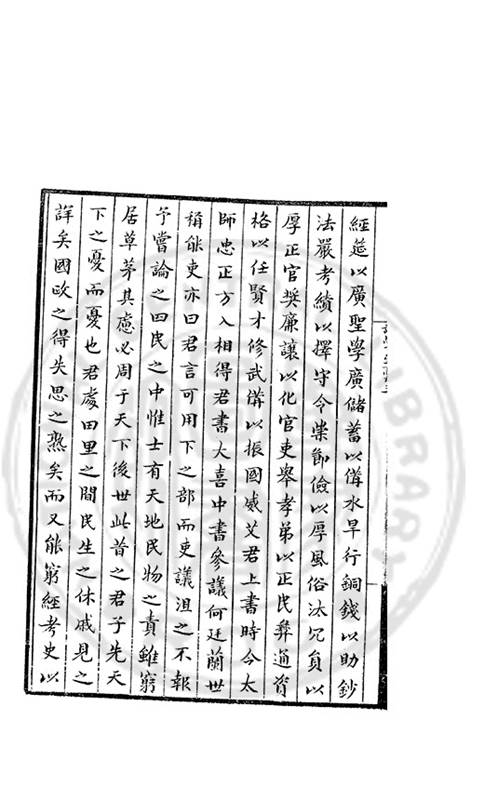 經筵以廣聖學廣儲蓄以備水旱行銅錢以助鈔
法嚴考績以擇守令崇節儉以厚風俗汰冗負以
厚正官奬廉讓以化官吏舉孝弟以正民彝通資
格以任賢才修武備以振國威艾君上書時今太
師忠正方入相得君書大喜中書參議何廷蘭世
稱能吏亦曰君言可用下之部而吏議沮之不報
予嘗論之曰民之中惟士有天地民物之責雖窮
居草茅其慮必周于天下後世此昔之君子先天
下之憂而憂也君處田里之間民生之休戚見之
詳矣國政之得失思之熟矣而又能窮經考史以